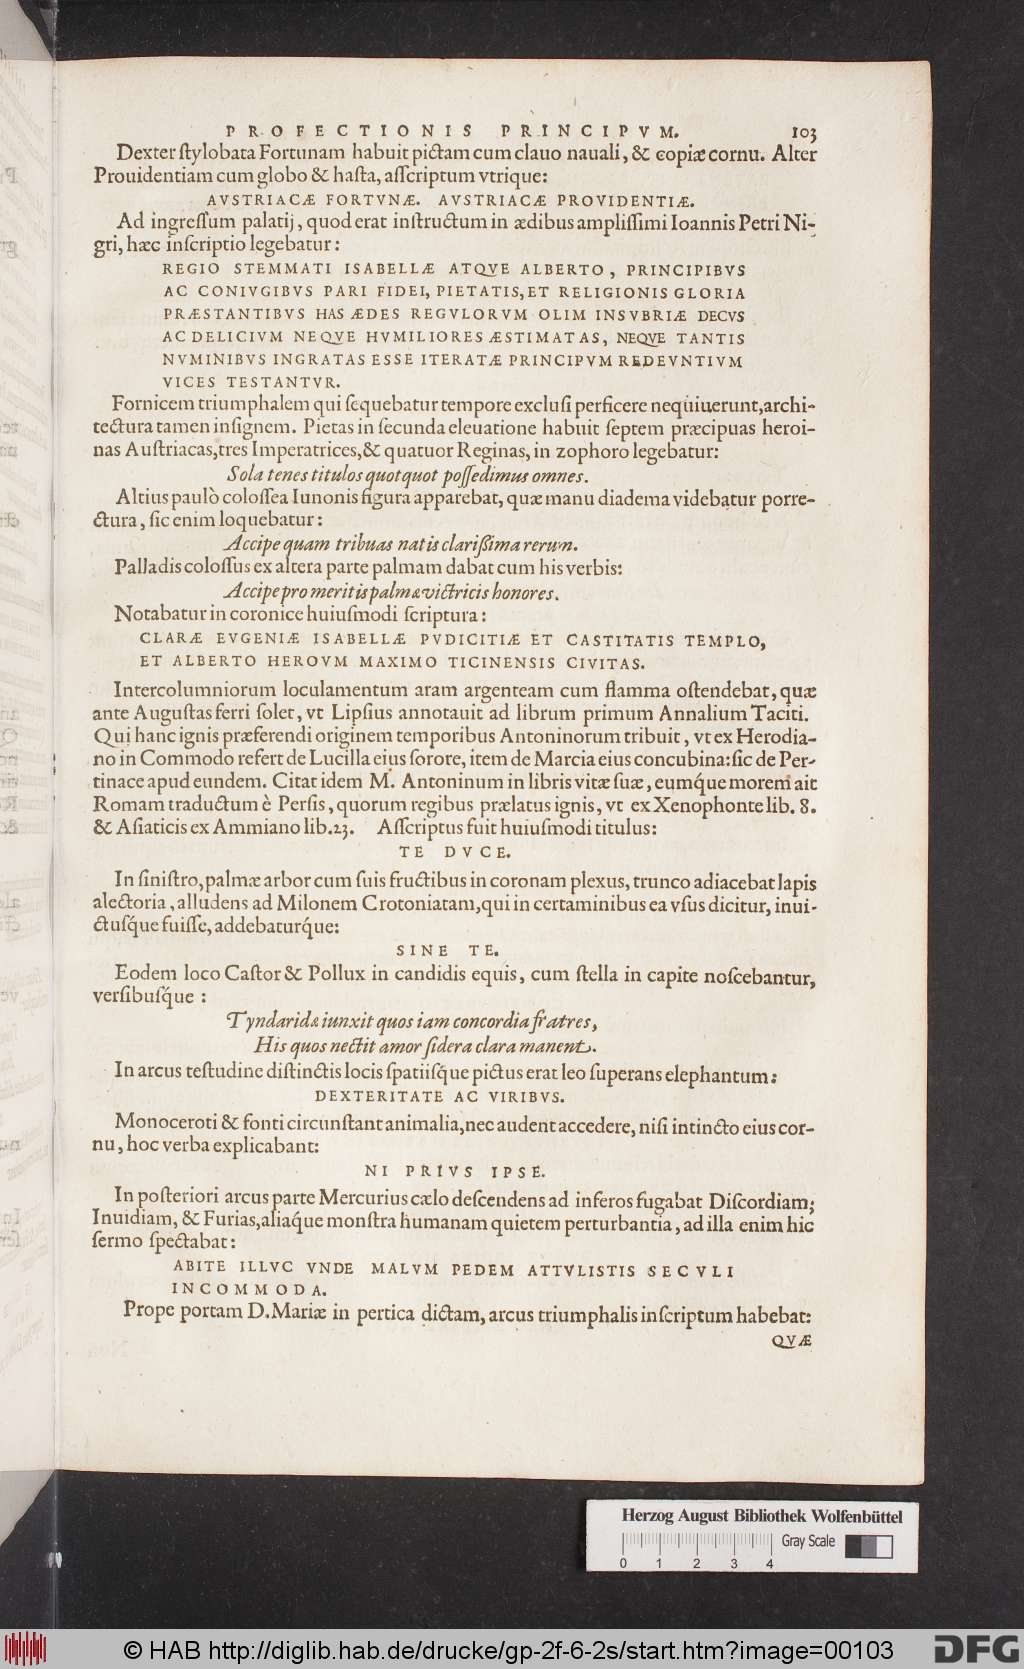 PROFECTIONIS PRINCIPVM. 103
Dexter ſtylobata Fortunam habuit pictam cum clauo nauali, & copiæ cornu. Alter
Prouidentiam cum globo & haſta, aſſcriptum vtrique:
AVSTRIACÆ FORTVNÆ. AVSTRIACÆ PROVIDENTIÆ.
Ad ingreſſum palatij, quod erat inſtructum in ædibus ampliſſimi Ioannis Petri Ni-
gri, hæc inſcriptio legebatur:
REGIO STEMMATI ISABELLÆ ATQVE ALBERTO, PRINCIPIBVS
AC CONIVGIBVS PARI FIDEI, PIETATIS, ET RELIGIONIS GLORIA
PRÆSTANTIBVS HAS ÆDES REGVLORVM OLIM INSVBRIÆ DECVS
AC DELICIVM NEQVE HVMILIORES ÆSTIMATAS, NEQVE TANTIS
NVMINIBVS INGRATAS ESSE ITERATÆ PRINCIPVM REDEVNTIVM
VICES TESTANTVR.
Fornicem triumphalem qui ſequebatur tempore excluſi perficere nequiuerunt, archi-
tectura tamen inſignem. Pietas in ſecunda eleuatione habuit ſeptem præcipuas heroi-
nas Auſtriacas, tres Imperatrices, & quatuor Reginas, in zophoro legebatur:
Sola tenes titulos quotquot poſſedimus omnes.
Altius paulò coloſſea Iunonis figura apparebat, quæ manu diadema videbatur porre-
ctura, ſic enim loquebatur:
Accipe quam tribuas natis clarißima rerum.
Palladis coloſſus ex altera parte palmam dabat cum his verbis:
Accipe pro meritis palmæ victricis honores.
Notabatur in coronice huiuſmodi ſcriptura:
CLARÆ EVGENIÆ ISABELLÆ PVDICITIÆ ET CASTITATIS TEMPLO,
ET ALBERTO HEROVM MAXIMO TICINENSIS CIVITAS.
Intercolumniorum loculamentum aram argenteam cum flamma oſtendebat, quæ
ante Auguſtas ferri ſolet, vt Lipſius annotauit ad librum primum Annalium Taciti.
Qui hanc ignis præferendi originem temporibus Antoninorum tribuit, vt ex Herodia-
no in Commodo refert de Lucilla eius ſorore, item de Marcia eius concubina: ſic de Per-
tinace apud eundem. Citat idem M. Antoninum in libris vitæ ſuæ, eumq́ue morem ait
Romam traductum è Perſis, quorum regibus prælatus ignis, vt ex Xenophonte lib. 8.
& Aſiaticis ex Ammiano lib. 23. Aſſcriptus fuit huiuſmodi titulus:
TE DVCE.
In ſiniſtro, palmæ arbor cum ſuis fructibus in coronam plexus, trunco adiacebat lapis
alectoria, alludens ad Milonem Crotoniatam, qui in certaminibus ea vſus dicitur, inui-
ctuſq́ue fuiſſe, addebaturq́ue:
SINE TE.
Eodem loco Caſtor & Pollux in candidis equis, cum ſtella in capite noſcebantur,
verſibuſq́ue:
Tyndaridæ iunxit quos iam concordia fratres,
His quos nectit amor ſidera clara manent.
In arcus teſtudine diſtinctis locis ſpatiiſq́ue pictus erat leo ſuperans elephantum:
DEXTERITATE AC VIRIBVS.
Monoceroti & fonti circunſtant animalia, nec audent accedere, niſi intincto eius cor-
nu, hoc verba explicabant:
NI PRIVS IPSE.
In poſteriori arcus parte Mercurius cælo deſcendens ad inferos fugabat Diſcordiam;
Inuidiam, & Furias, aliaq́ue monſtra humanam quietem perturbantia, ad illa enim hic
ſermo ſpectabat:
ABITE ILLVC VNDE MALVM PEDEM ATTVLISTIS SECVLI
INCOMMODA.
Prope portam D. Mariæ in pertica dictam, arcus triumphalis inſcriptum habebat:
QVÆ
Herzog August Bibliothek Wolfenbüttel
Gray Scale
0 1 2 3 4
© HAB http://diglib.hab.de/drucke/gp-2f-6-2s/start.htm?image=00103
DFG